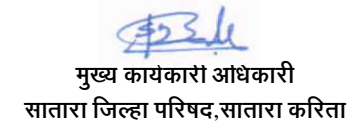 मुख्य कार्यकारी अधिकारी
सातारा जिल्हा परिषद,सातारा करिता